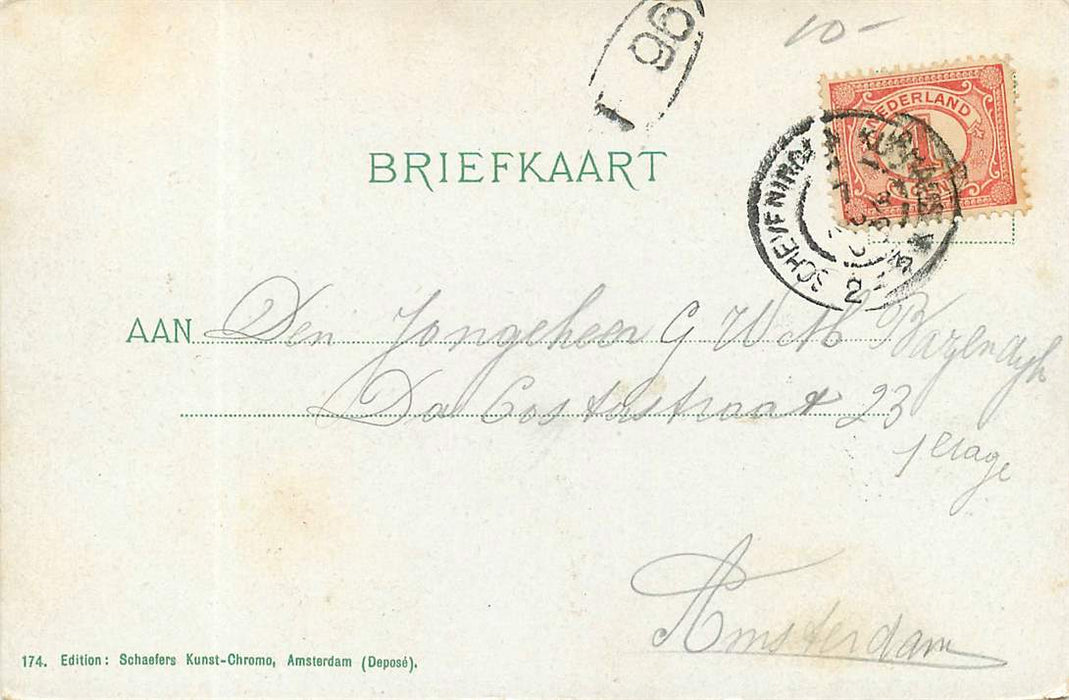 96
10-
NEDERLAND
1
CENT
SCHEVENINGEN
BRIEFKAART
AAN Den Jongeheer G W M Bazendijk
Da Costastraat 23
1 Etage
Amsterdam
174. Edition: Schaefers Kunst-Chromo, Amsterdam (Deposé).